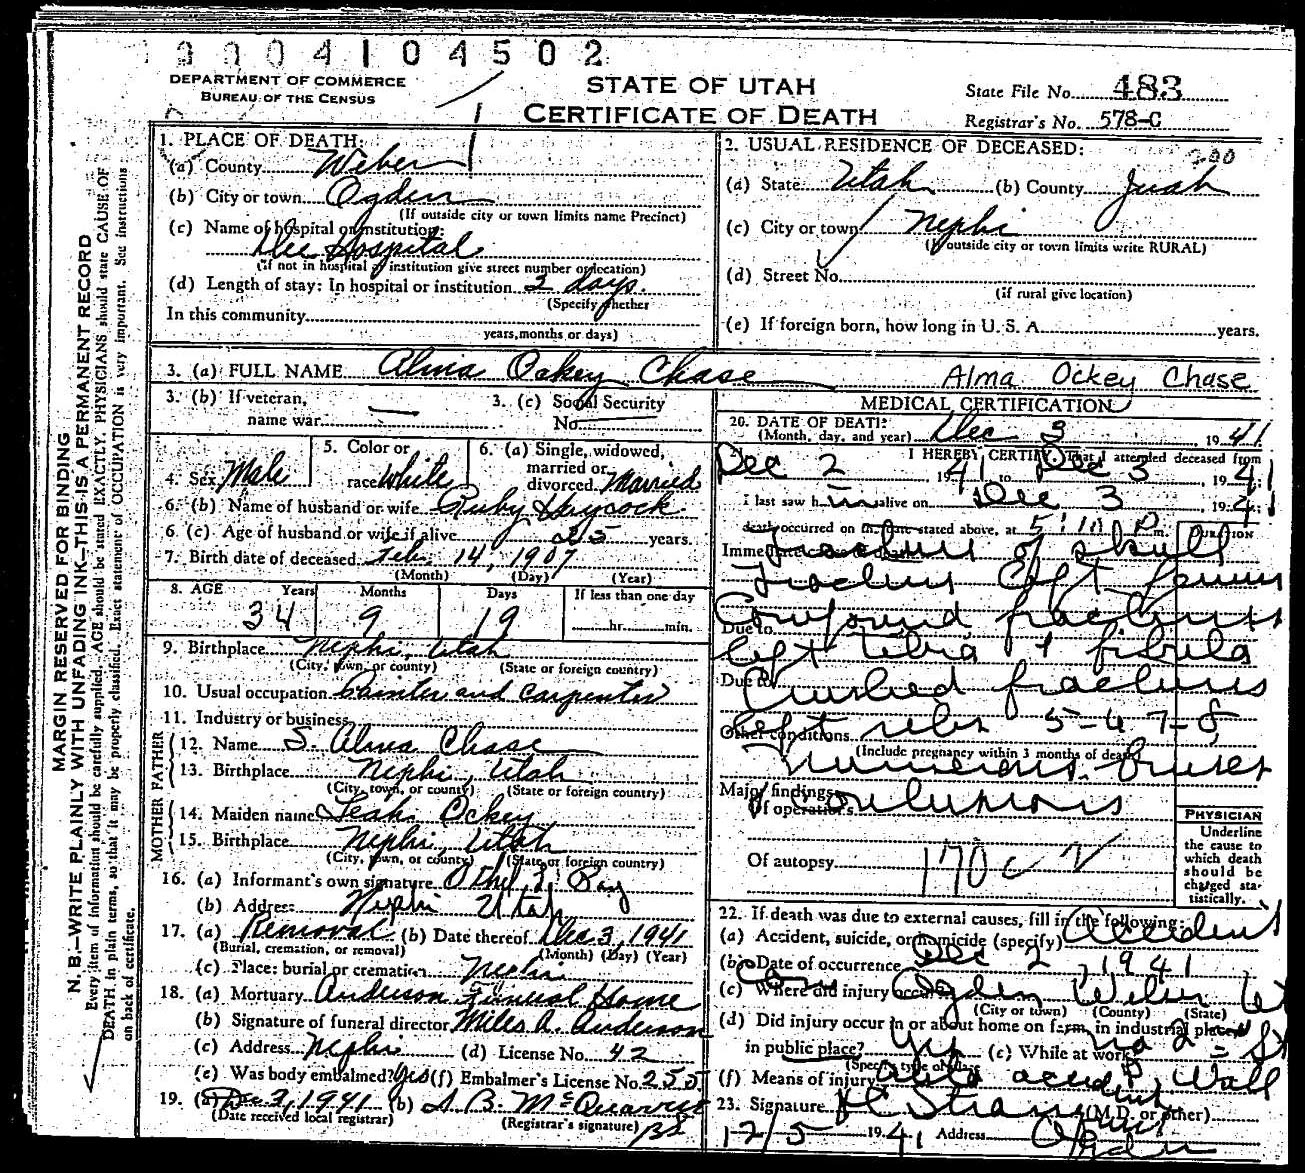 0004104502
DEPARTMENT OF COMMERCE
BUREAU OF THE CENSUS
STATE OF UTAH
CERTIFICATE OF DEATH
State File No. 483
Registrar's No. 578-C
MARGIN RESERVED FOR BINDING
N. B.—WRITE PLAINLY WITH UNFADING INK—THIS IS A PERMANENT RECORD
Every item of information should be carefully supplied. AGE should be stated EXACTLY. PHYSICIANS should state CAUSE OF
DEATH in plain terms, so that it may be properly classified. Exact statement of OCCUPATION is very important. See instructions
on back of certificate.
1. PLACE OF DEATH:
(a) County Weber
(b) City or town Ogden
(If outside city or town limits name Precinct)
(c) Name of hospital or institution:
Dee Hospital
(if not in hospital or institution give street number or location)
(d) Length of stay: In hospital or institution 2 days.
(Specify whether
In this community
years, months or days)
2. USUAL RESIDENCE OF DECEASED:
200
(a) State Utah (b) County Juab
(c) City or town Nephi
(If outside city or town limits write RURAL)
(d) Street No.
(if rural give location)
(e) If foreign born, how long in U. S. A. years.
3. (a) FULL NAME Alma Ockey Chase Alma Ockey Chase
3. (b) If veteran,
name war —
3. (c) Social Security
No
4. Sex Male
5. Color or
race White
6. (a) Single, widowed,
married or
divorced Married
6. (b) Name of husband or wife Ruby Haycock
6 (c) Age of husband or wife if alive 25 years.
7. Birth date of deceased Feb. 14, 1907
(Month) (Day) (Year)
8. AGE Years Months Days If less than one day
34 9 19 hr. min.
9. Birthplace Nephi, Utah
(City, town, or county) (State or foreign country)
10. Usual occupation Painter and Carpenter
11. Industry or business
FATHER
12. Name S. Alma Chase
13. Birthplace Nephi, Utah
(City, town, or county) (State or foreign country)
MOTHER
14. Maiden name Leah Ockey
15. Birthplace Nephi, Utah
(City, town, or county) (State or foreign country)
16. (a) Informant's own signature
(b) Address Nephi Utah
17. (a) Removal (b) Date thereof Dec 3, 1941
(Burial, cremation, or removal) (Month) (Day) (Year)
(c) Place: burial or cremation Nephi
18. (a) Mortuary Anderson Funeral Home
(b) Signature of funeral director Miles A. Anderson
(c) Address Nephi (d) License No. 42
(e) Was body embalmed? Yes (f) Embalmer's License No. 255
19. (a) Dec 3, 1941 (b) A. B. McQuarrie
(Date received local registrar) (Registrar's signature)
MEDICAL CERTIFICATION
20. DATE OF DEATH:
(Month, day, and year) Dec 3, 1941
21. I HEREBY CERTIFY, That I attended deceased from
Dec 2 1941 to Dec 3, 1941
I last saw him alive on Dec 3 1941
death occurred on the date stated above, at 5:10 P. m.
DURATION
Immediate
Fracture of skull
Fracture left femur
Compound fractures
Due to
left tibia & fibula
Due to
Crushed fractures
left ribs 5-6 7-8,
Other conditions
(Include pregnancy within 3 months of death)
numerous bruises
Major findings:
Of operations
contusions
Of autopsy
170c
PHYSICIAN
Underline
the cause to
which death
should be
charged sta-
tistically.
22. If death was due to external causes, fill in the following:
(a) Accident, suicide, or homicide (specify) Accident
(b) Date of occurrence Dec 2, 1941
(c) Where did injury occur? Ogden Weber Ut
(City or town) (County) (State)
(d) Did injury occur in or about home on farm, in industrial place
in public place? Yes (e) While at work? no
(Specify type of place)
(f) Means of injury auto accident, Wall
23. Signature (M.D. or other)
12/5 1941 Address Ogden